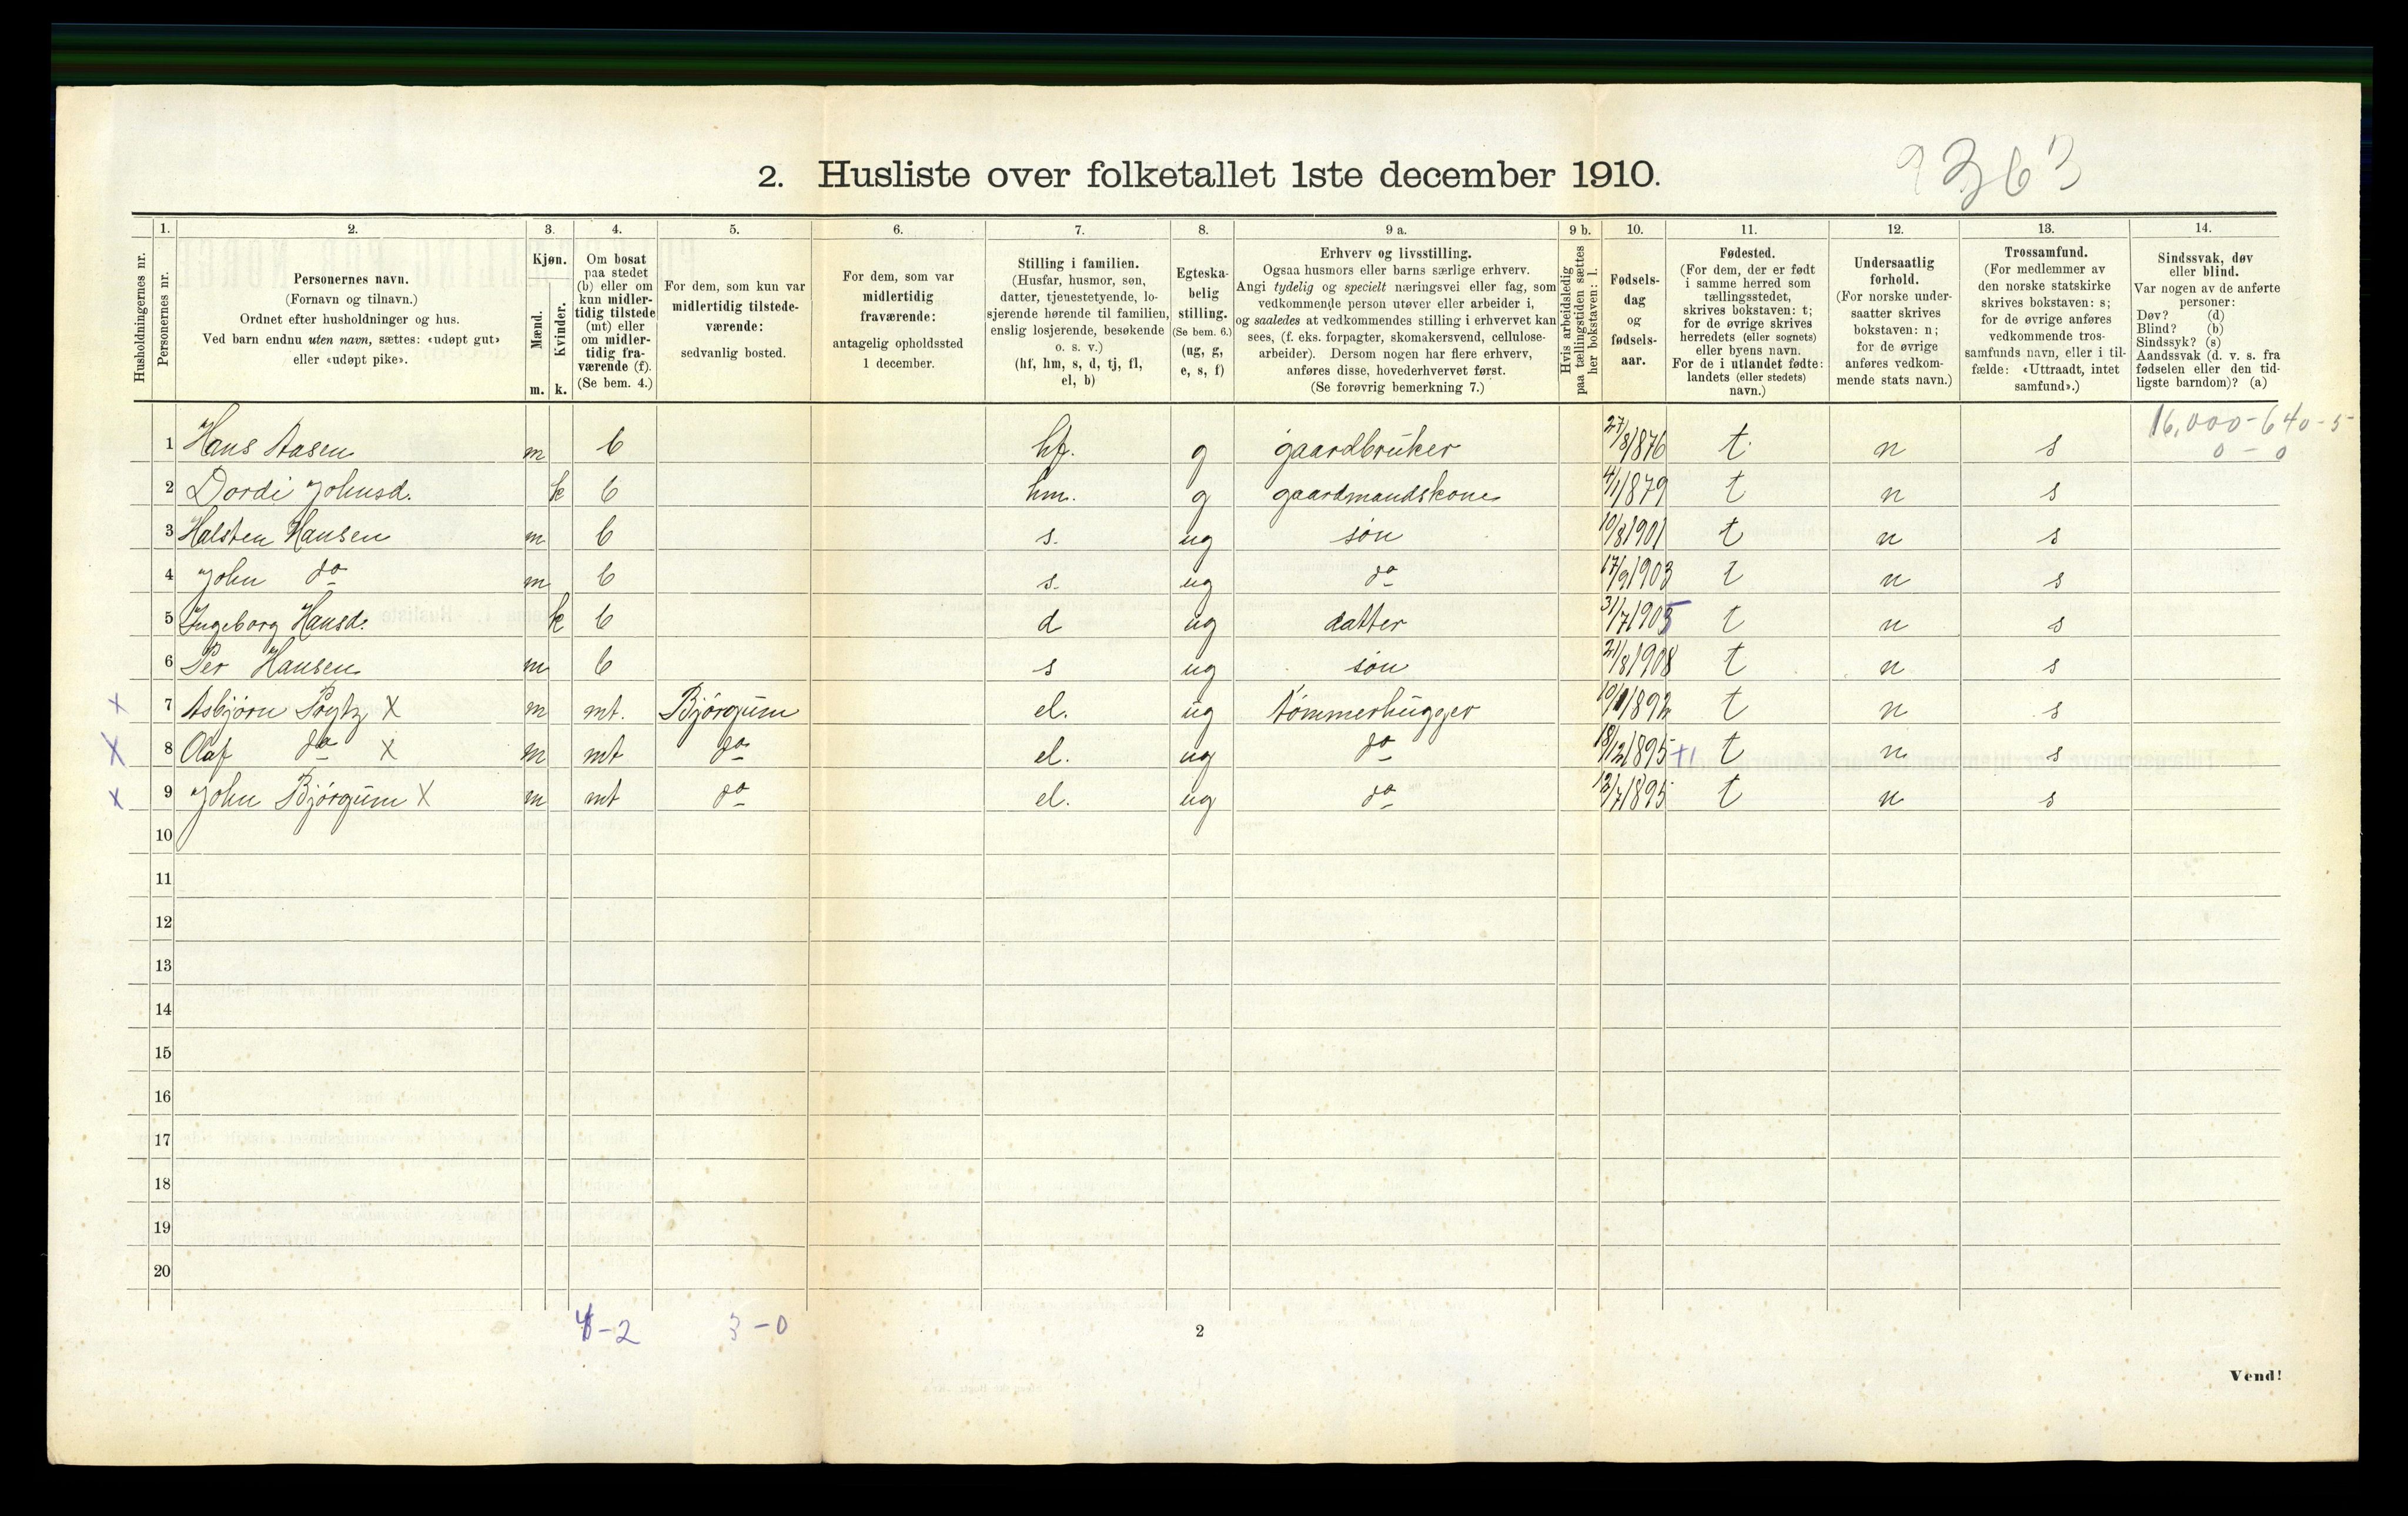 9363
2. Husliste over folketallet 1ste december 1910.
Husholdningernes nr.
1. Personernes nr.
2. Personernes navn.
(Fornavn og tilnavn.)
Ordnet efter husholdninger og hus.
Ved barn endnu uten navn, sættes: «udøpt gut»
eller «udøpt pike».
3. Kjøn.
Mænd. m.
Kvinder. k.
4. Om bosat
paa stedet
(b) eller om
kun midler-
tidig tilstede
(mt) eller
om midler-
tidig fra-
værende (f).
(Se bem. 4.)
5. For dem, som kun var
midlertidig tilstede-
værende:
sedvanlig bosted.
6. For dem, som var
midlertidig
fraværende:
antagelig opholdssted
1 december.
7. Stilling i familien.
(Husfar, husmor, søn,
datter, tjenestetyende, lo-
sjerende hørende til familien,
enslig losjerende, besøkende
o. s. v.)
(hf, hm, s, d, tj, fl,
el, b)
8. Egteska-
belig
stilling.
(Se bem. 6.)
(ug, g,
e, s, f)
9 a. Erhverv og livsstilling.
Ogsaa husmors eller barns særlige erhverv.
Angi tydelig og specielt næringsvei eller fag, som
vedkommende person utøver eller arbeider i,
og saaledes at vedkommendes stilling i erhvervet kan
sees, (f. eks. forpagter, skomakersvend, cellulose-
arbeider). Dersom nogen har flere erhverv,
anføres disse, hovederhvervet først.
(Se forøvrig bemerkning 7.)
9 b. Hvis arbeidsledig
paa tællingstiden sættes
her bokstaven: l.
10. Fødsels-
dag
og
fødsels-
aar.
11. Fødested.
(For dem, der er født
i samme herred som
tællingsstedet,
skrives bokstaven: t;
for de øvrige skrives
herredets (eller sognets)
eller byens navn.
For de i utlandet fødte:
landets (eller stedets)
navn.)
12. Undersaatlig
forhold.
(For norske under-
saatter skrives
bokstaven: n;
for de øvrige
anføres vedkom-
mende stats navn.)
13. Trossamfund.
(For medlemmer av
den norske statskirke
skrives bokstaven: s;
for de øvrige anføres
vedkommende tros-
samfunds navn, eller i til-
fælde: «Uttraadt, intet
samfund».)
14. Sindssvak, døv
eller blind.
Var nogen av de anførte
personer:
Døv? (d)
Blind? (b)
Sindssyk? (s)
Aandssvak (d. v. s. fra
fødselen eller den tid-
ligste barndom)? (a)
16,000-640-5
0 - 0
1 Hans Aasen m b hf. g gaardbruker 27/8/876 t n s
2 Dordi Johnsd. k b hm. g gaardmandskone 4/1/879 t n s
3 Halsten Hansen m b s. ug søn 10/8 1901 t n s
4 John do m b s. ug do 17/9 1903 t n s
5 Ingeborg Hansd. k b d ug datter 31/7 1905 t n s
6 Per Hansen m b s ug søn 21/8 1908 t n s
X 7 Asbjørn X m mt. Bjørgum el. ug tømmerhugger t n s
X 8 Olaf do X m mt do el. ug do 18/12 1895 +1 t n s
X 9 John Bjørgum X m mt do el. ug do t n s
10
11
12
13
14
15
16
17
18
19
20
4-2 3-0
2
Vend!